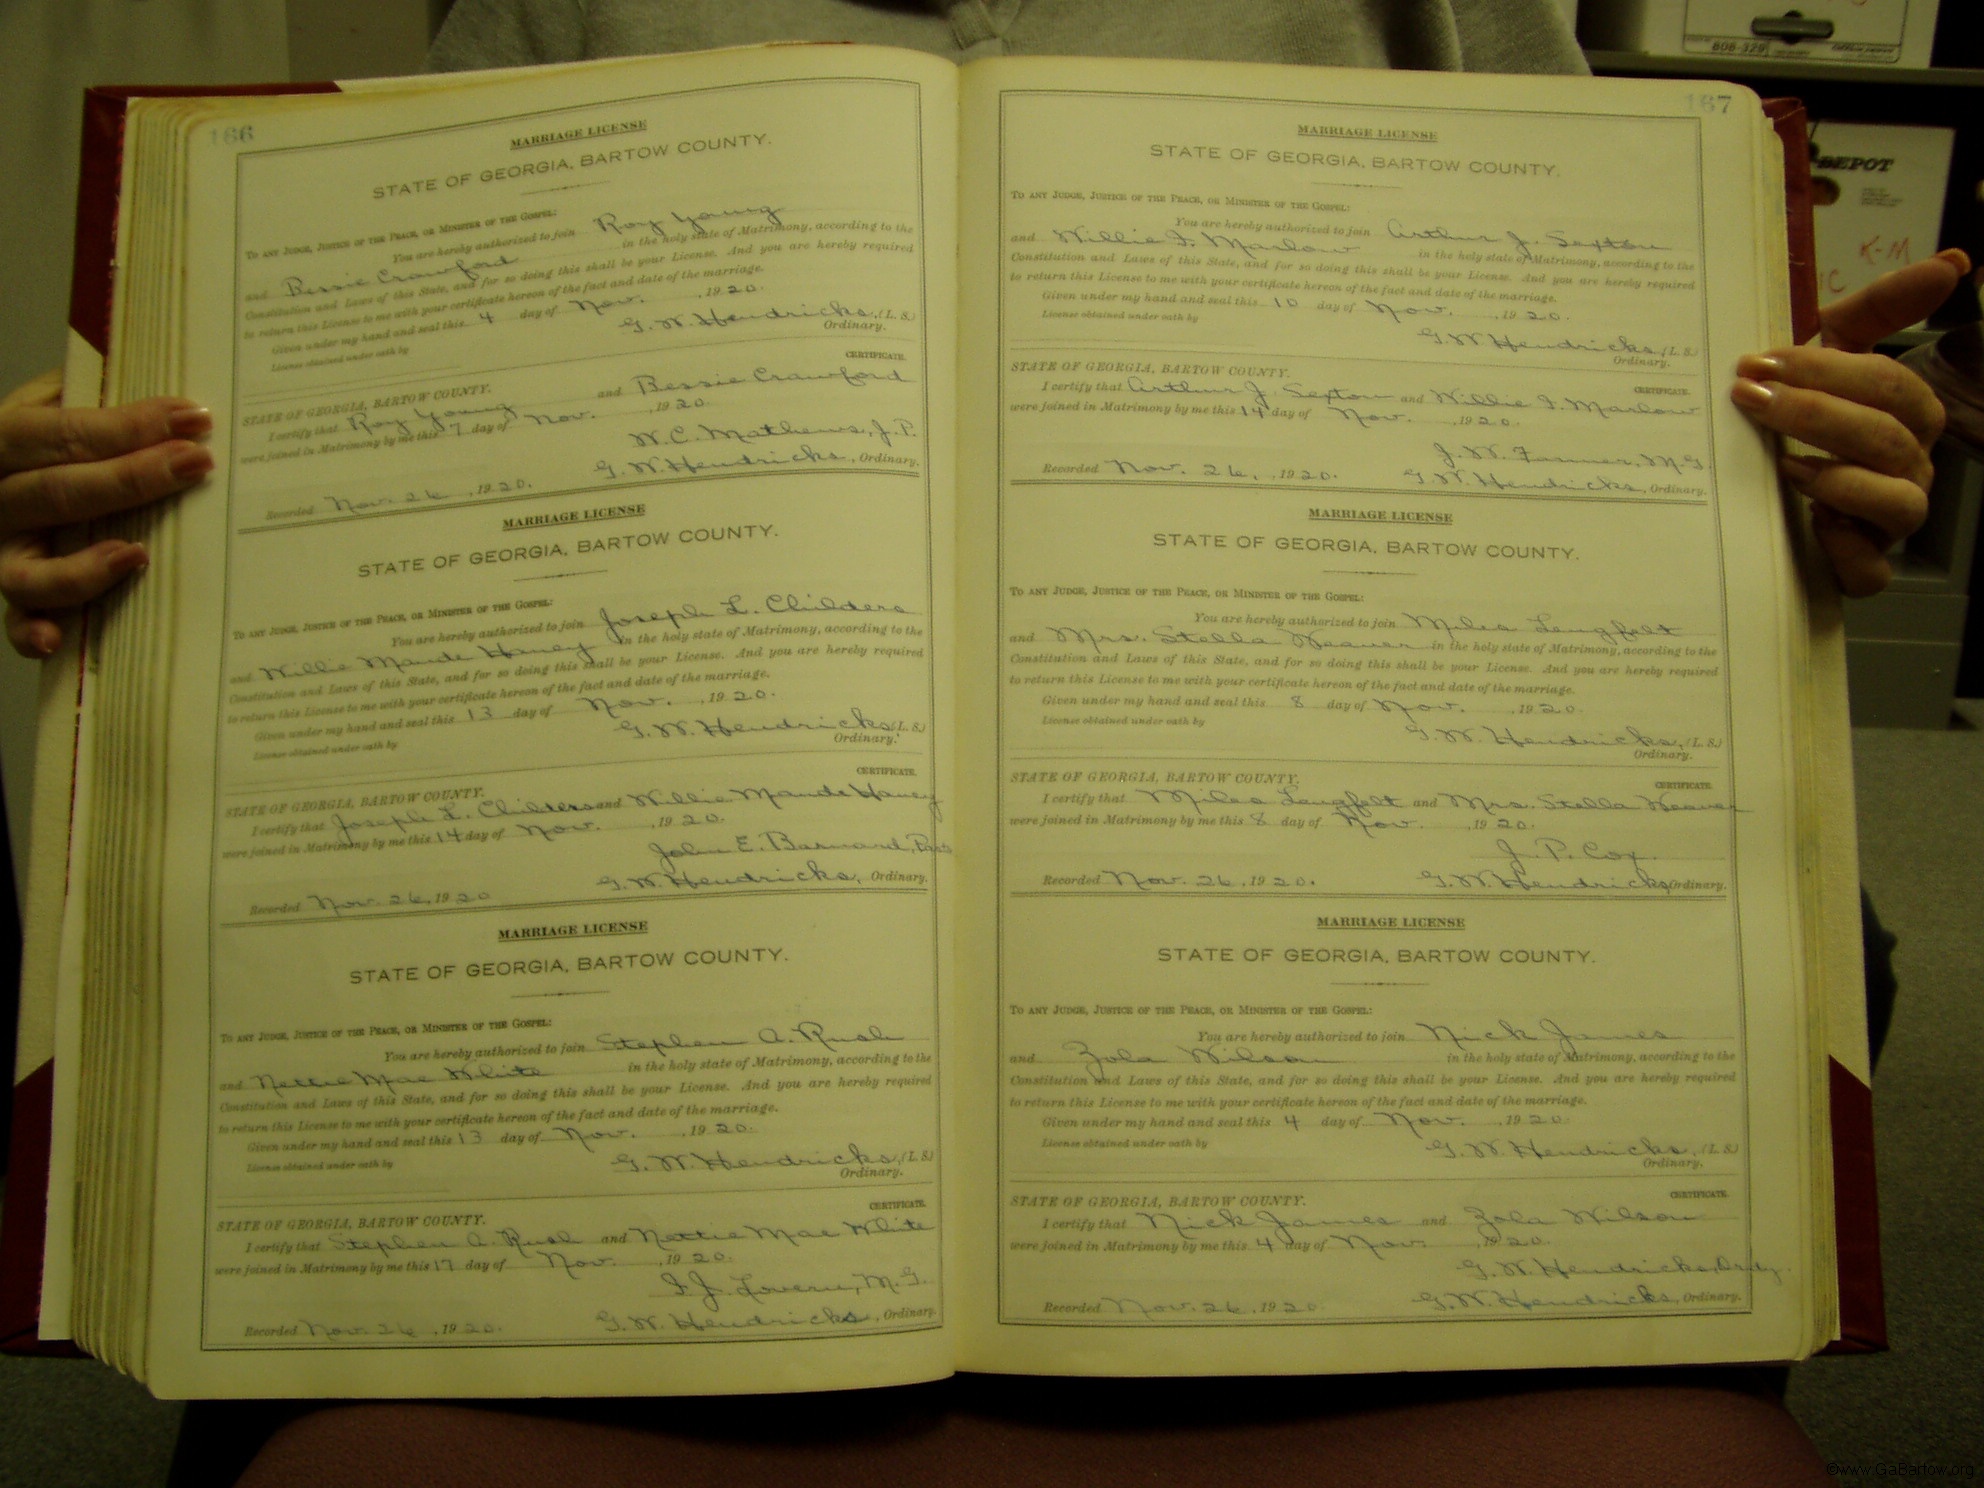 166
MARRIAGE LICENSE
STATE OF GEORGIA, BARTOW COUNTY.
TO ANY JUDGE, JUSTICE OF THE PEACE, OR MINISTER OF THE GOSPEL:
You are hereby authorized to join Roy Young
and Bessie Crawford in the holy state of Matrimony, according to the
Constitution and Laws of this State, and for so doing this shall be your License. And you are hereby required
to return this License to me with your certificate hereon of the fact and date of the marriage.
Given under my hand and seal this 4 day of Nov. , 1920.
License obtained under oath by
G. W. Hendricks, (L. S.)
Ordinary.
CERTIFICATE.
STATE OF GEORGIA, BARTOW COUNTY.
I certify that Roy Young and Bessie Crawford
were joined in Matrimony by me this 7 day of Nov. , 1920.
W. C. Mathews, J. P.
Recorded Nov. 26 , 1920. G. W. Hendricks, Ordinary.
MARRIAGE LICENSE
STATE OF GEORGIA, BARTOW COUNTY.
TO ANY JUDGE, JUSTICE OF THE PEACE, OR MINISTER OF THE GOSPEL:
You are hereby authorized to join Joseph L. Childers
and Willie Maude Haney in the holy state of Matrimony, according to the
Constitution and Laws of this State, and for so doing this shall be your License. And you are hereby required
to return this License to me with your certificate hereon of the fact and date of the marriage.
Given under my hand and seal this 13 day of Nov. , 1920.
License obtained under oath by
G. W. Hendricks (L. S.)
Ordinary.
CERTIFICATE.
STATE OF GEORGIA, BARTOW COUNTY.
I certify that Joseph L. Childers and Willie Maude Haney
were joined in Matrimony by me this 14 day of Nov. , 1920.
John E. Barnard,
Recorded Nov. 26, 1920 G. W. Hendricks, Ordinary.
MARRIAGE LICENSE
STATE OF GEORGIA, BARTOW COUNTY.
TO ANY JUDGE, JUSTICE OF THE PEACE, OR MINISTER OF THE GOSPEL:
You are hereby authorized to join Stephen A. Rush
and Nettie Mae White in the holy state of Matrimony, according to the
Constitution and Laws of this State, and for so doing this shall be your License. And you are hereby required
to return this License to me with your certificate hereon of the fact and date of the marriage.
Given under my hand and seal this 13 day of Nov. , 1920.
License obtained under oath by
G. W. Hendricks, (L. S.)
Ordinary.
CERTIFICATE.
STATE OF GEORGIA, BARTOW COUNTY.
I certify that Stephen A. Rush and Nettie Mae White
were joined in Matrimony by me this 17 day of Nov. , 1920.
Lovern, M. G.
Recorded Nov. 26 , 1920. G. W. Hendricks, Ordinary.
167
MARRIAGE LICENSE
STATE OF GEORGIA, BARTOW COUNTY.
TO ANY JUDGE, JUSTICE OF THE PEACE, OR MINISTER OF THE GOSPEL:
You are hereby authorized to join Arthur J. Sexton
and Willie I. Marlow in the holy state of Matrimony, according to the
Constitution and Laws of this State, and for so doing this shall be your License. And you are hereby required
to return this License to me with your certificate hereon of the fact and date of the marriage.
Given under my hand and seal this 10 day of Nov. , 1920.
License obtained under oath by
G. W. Hendricks, (L. S.)
Ordinary.
CERTIFICATE.
STATE OF GEORGIA, BARTOW COUNTY.
I certify that Arthur J. Sexton and Willie I. Marlow
were joined in Matrimony by me this 14 day of Nov. , 1920.
J. W. Farmer, M. G.
Recorded Nov. 26, , 1920. G. W. Hendricks, Ordinary.
MARRIAGE LICENSE
STATE OF GEORGIA, BARTOW COUNTY.
TO ANY JUDGE, JUSTICE OF THE PEACE, OR MINISTER OF THE GOSPEL:
You are hereby authorized to join Miles Lengfelt
and Mrs. Stella Weaver in the holy state of Matrimony, according to the
Constitution and Laws of this State, and for so doing this shall be your License. And you are hereby required
to return this License to me with your certificate hereon of the fact and date of the marriage.
Given under my hand and seal this 8 day of Nov. , 1920.
License obtained under oath by
G. W. Hendricks, (L. S.)
Ordinary.
CERTIFICATE.
STATE OF GEORGIA, BARTOW COUNTY.
I certify that Miles Lengfelt and Mrs. Stella Weaver
were joined in Matrimony by me this 8 day of Nov. , 1920.
J. P. Cox.
Recorded Nov. 26, 1920. G. W. Hendricks, Ordinary.
MARRIAGE LICENSE
STATE OF GEORGIA, BARTOW COUNTY.
TO ANY JUDGE, JUSTICE OF THE PEACE, OR MINISTER OF THE GOSPEL:
You are hereby authorized to join Nick James
and Zola Wilson in the holy state of Matrimony, according to the
Constitution and Laws of this State, and for so doing this shall be your License. And you are hereby required
to return this License to me with your certificate hereon of the fact and date of the marriage.
Given under my hand and seal this 4 day of Nov. , 1920
License obtained under oath by
G. W. Hendricks, (L. S.)
Ordinary.
CERTIFICATE.
STATE OF GEORGIA, BARTOW COUNTY.
I certify that Nick James and Zola Wilson
were joined in Matrimony by me this 4 day of Nov. , 1920.
G. W. Hendricks, Ordy.
Recorded Nov. 26, 1920. G. W. Hendricks, Ordinary.
808-329
DEPOT
K-M
©www.GaBartow.org